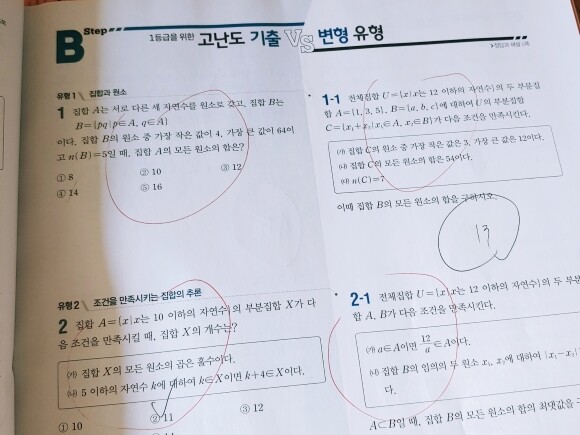 B Step
1등급을 위한 고난도 기출 VS 변형 유형
유형 1 집합과 원소
1 집합 A는 서로 다른 세 자연수를 원소로 갖고, 집합 B는
B={pq|p∈A, q∈A}
이다. 집합 B의 원소 중 가장 작은 값이 4, 가장 큰 값이 64이
고 n(B)=5일 때, 집합 A의 모든 원소의 합은?
① 8 ② 10 ③ 12
④ 14 ⑤ 16
유형 2 조건을 만족시키는 집합의 추론
2 집합 A={x|x는 10 이하의 자연수}의 부분집합 X가 다
음 조건을 만족시킬 때, 집합 X의 개수는?
㈎ 집합 X의 모든 원소의 곱은 홀수이다.
㈏ 5 이하의 자연수 k에 대하여 k∈X이면 k+4∈X이다.
① 10 ② 11 ③ 12
1-1 전체집합 U={x|x는 12 이하의 자연수}의 두 부분집
합 A={1, 3, 5}, B={a, b, c}에 대하여 U의 부분집합
C={x₁+x₂|x₁∈A, x₂∈B}가 다음 조건을 만족시킨다.
㈎ 집합 C의 원소 중 가장 작은 값은 3, 가장 큰 값은 12이다.
㈏ 집합 C의 모든 원소의 합은 54이다.
㈐ n(C)=7
이때 집합 B의 모든 원소의 합을 구하시오.
13
2-1 전체집합 U={x|x는 12 이하의 자연수}의 두 부분
합 A, B가 다음 조건을 만족시킨다.
㈎ a∈A이면 12/a∈A이다.
㈏ 집합 B의 임의의 두 원소 x₁, x₂에 대하여 |x₁-x₂|
다.
A⊂B일 때, 집합 B의 모든 원소의 합의 최댓값을